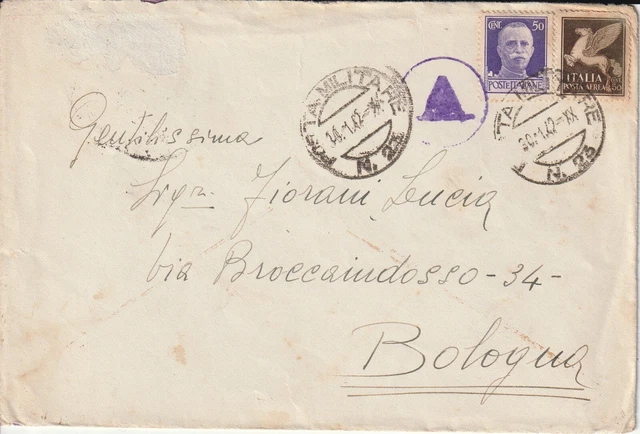 CENT. 50
POSTE ITALIANE
ITALIA
POSTA AEREA
50
POSTA MILITARE
30.1.42-XX
N. 23
POSTA MILITARE
30.1.42-XX
N. 23
A
Gentilissima
Sig.na Fiorani Lucia
Via Broccaindosso-34-
Bologna